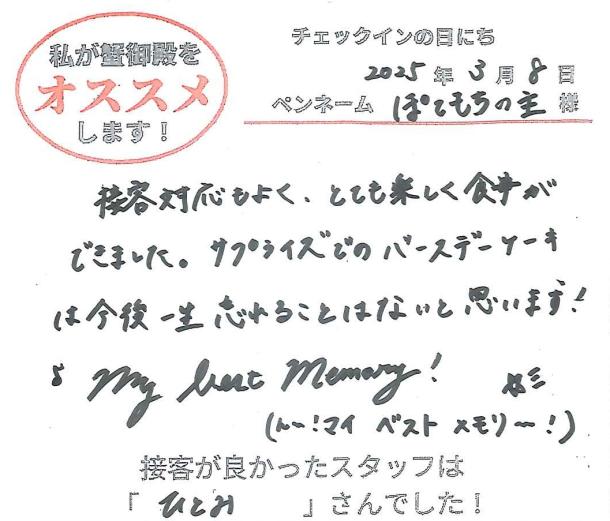 私が蟹御殿を
オススメ
します！
チェックインの日にち
2025年3月8日
ペンネーム ぽてもちの主 様
接客対応もよく、とても楽しく食事が
できました。サプライズでのバースデーケーキ
は今後一生忘れることはないと思います！
♪ My best Memory!
(ん〜！マイ ベスト メモリー〜！)
接客が良かったスタッフは
「 ひとみ 」さんでした！